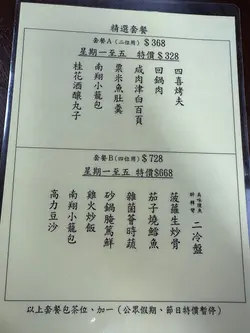 精選套餐
套餐A(二位用) $368
星期一至五 特價 $328
四喜烤夫
回鍋肉
咸肉津白百頁
粟米魚肚羹
南翔小籠包
桂花酒釀丸子
套餐B(四位用) $728
星期一至五 特價$668
二冷盤
菠蘿生炒骨
茄子燒鱈魚
雜菌薈時蔬
砂鍋腌篤鮮
雞火炒飯
南翔小籠包
高力豆沙
以上套餐包茶位、加一(公眾假期、節日特價暫停)